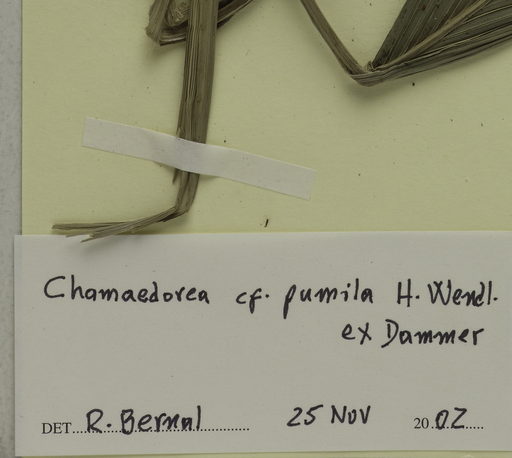 Chamaedorea cf. pumila H. Wendl.
ex Dammer
DET. R. Bernal 25 NOV 2002